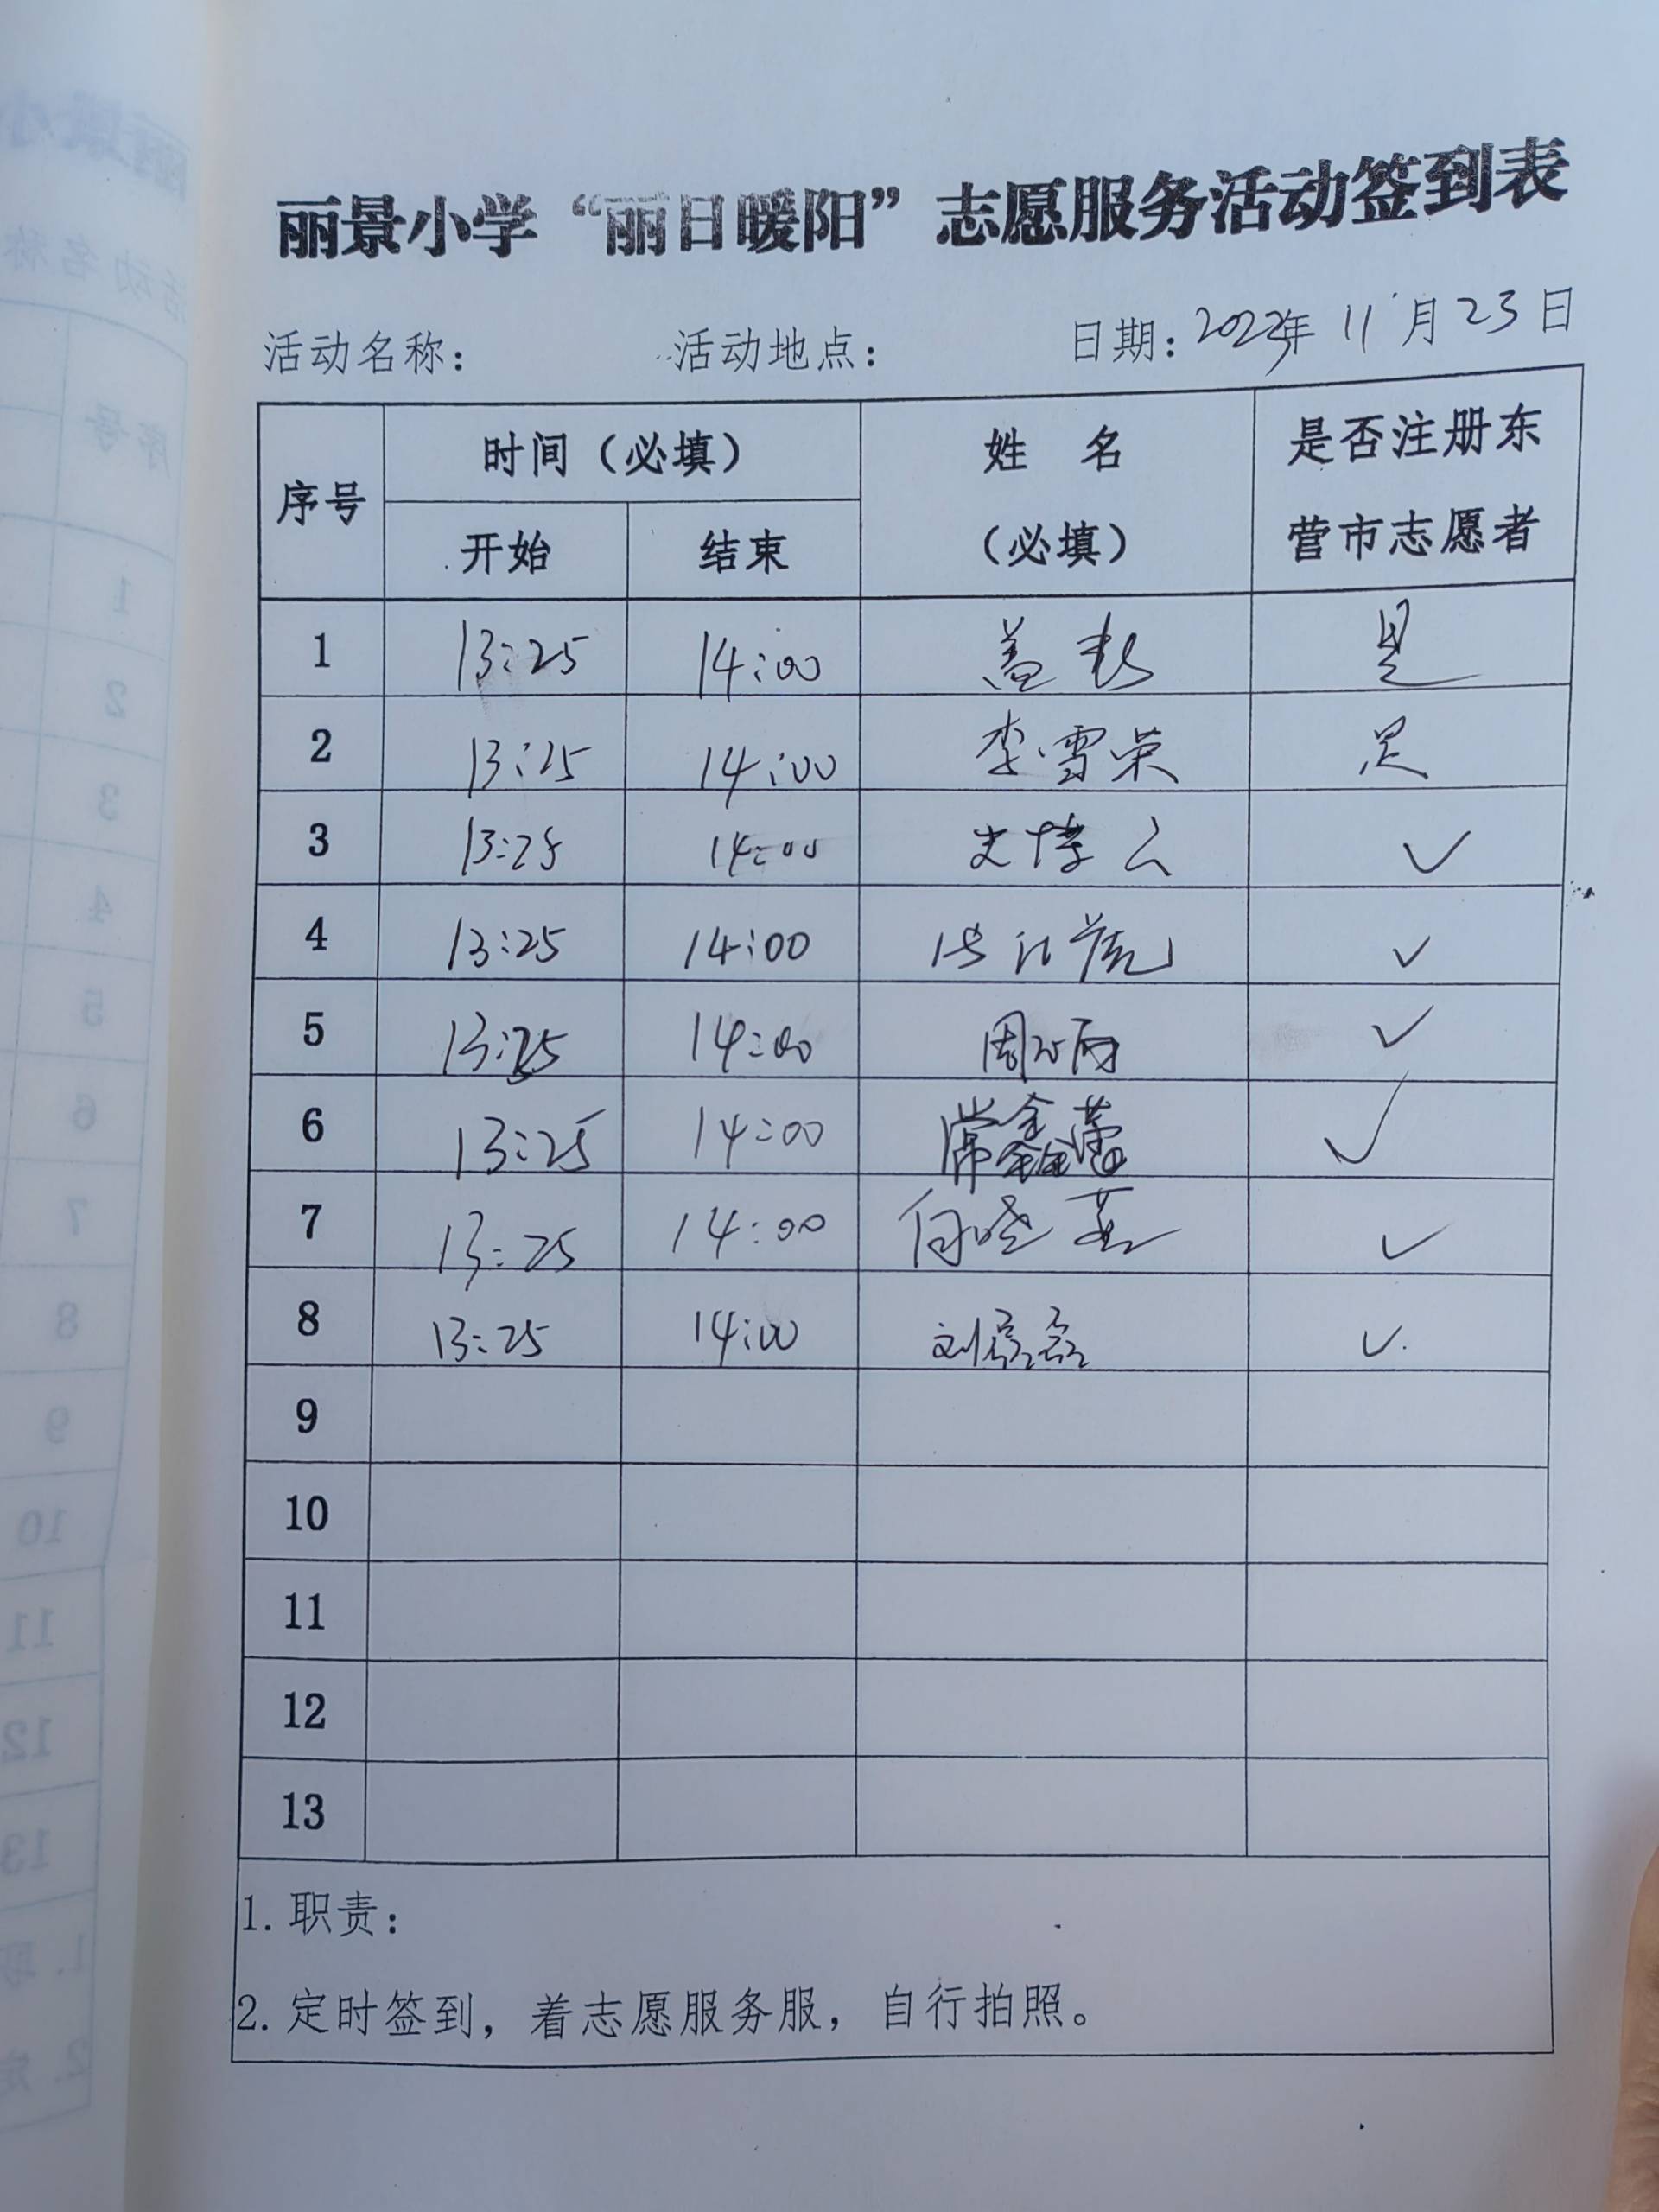 丽景小学“丽日暖阳”志愿服务活动签到表
活动名称： 活动地点： 日期：2023年 11月 23日
序号 时间（必填） 姓 名（必填） 是否注册东营市志愿者
开始 结束
1 13:25 14:00 盖 是
2 13:25 14:00 李雪荣 是
3 13:25 14:00 史 ✓
4 13:25 14:00 ✓
5 13:25 14:00 周 ✓
6 13:25 14:00 常鑫蕾 ✓
7 13:25 14:00 何晓 ✓
8 13:25 14:00 刘 ✓
9
10
11
12
13
1. 职责：
2. 定时签到，着志愿服务服，自行拍照。